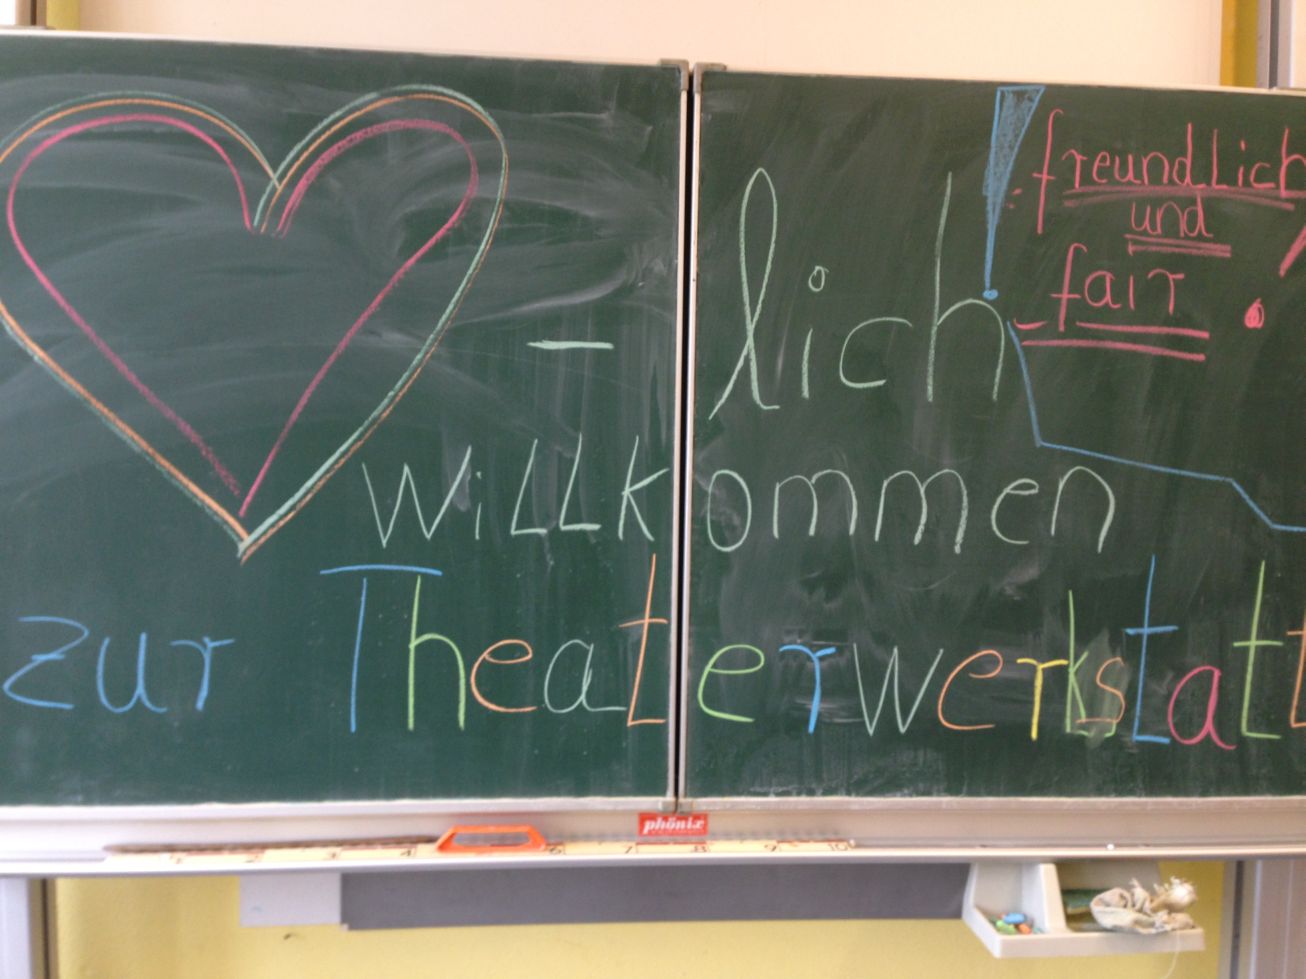 - lich
freundlich
und
fair !
willkommen
zur Theaterwerkstatt
phönix
1 2 3 4 6 7 8 9 10